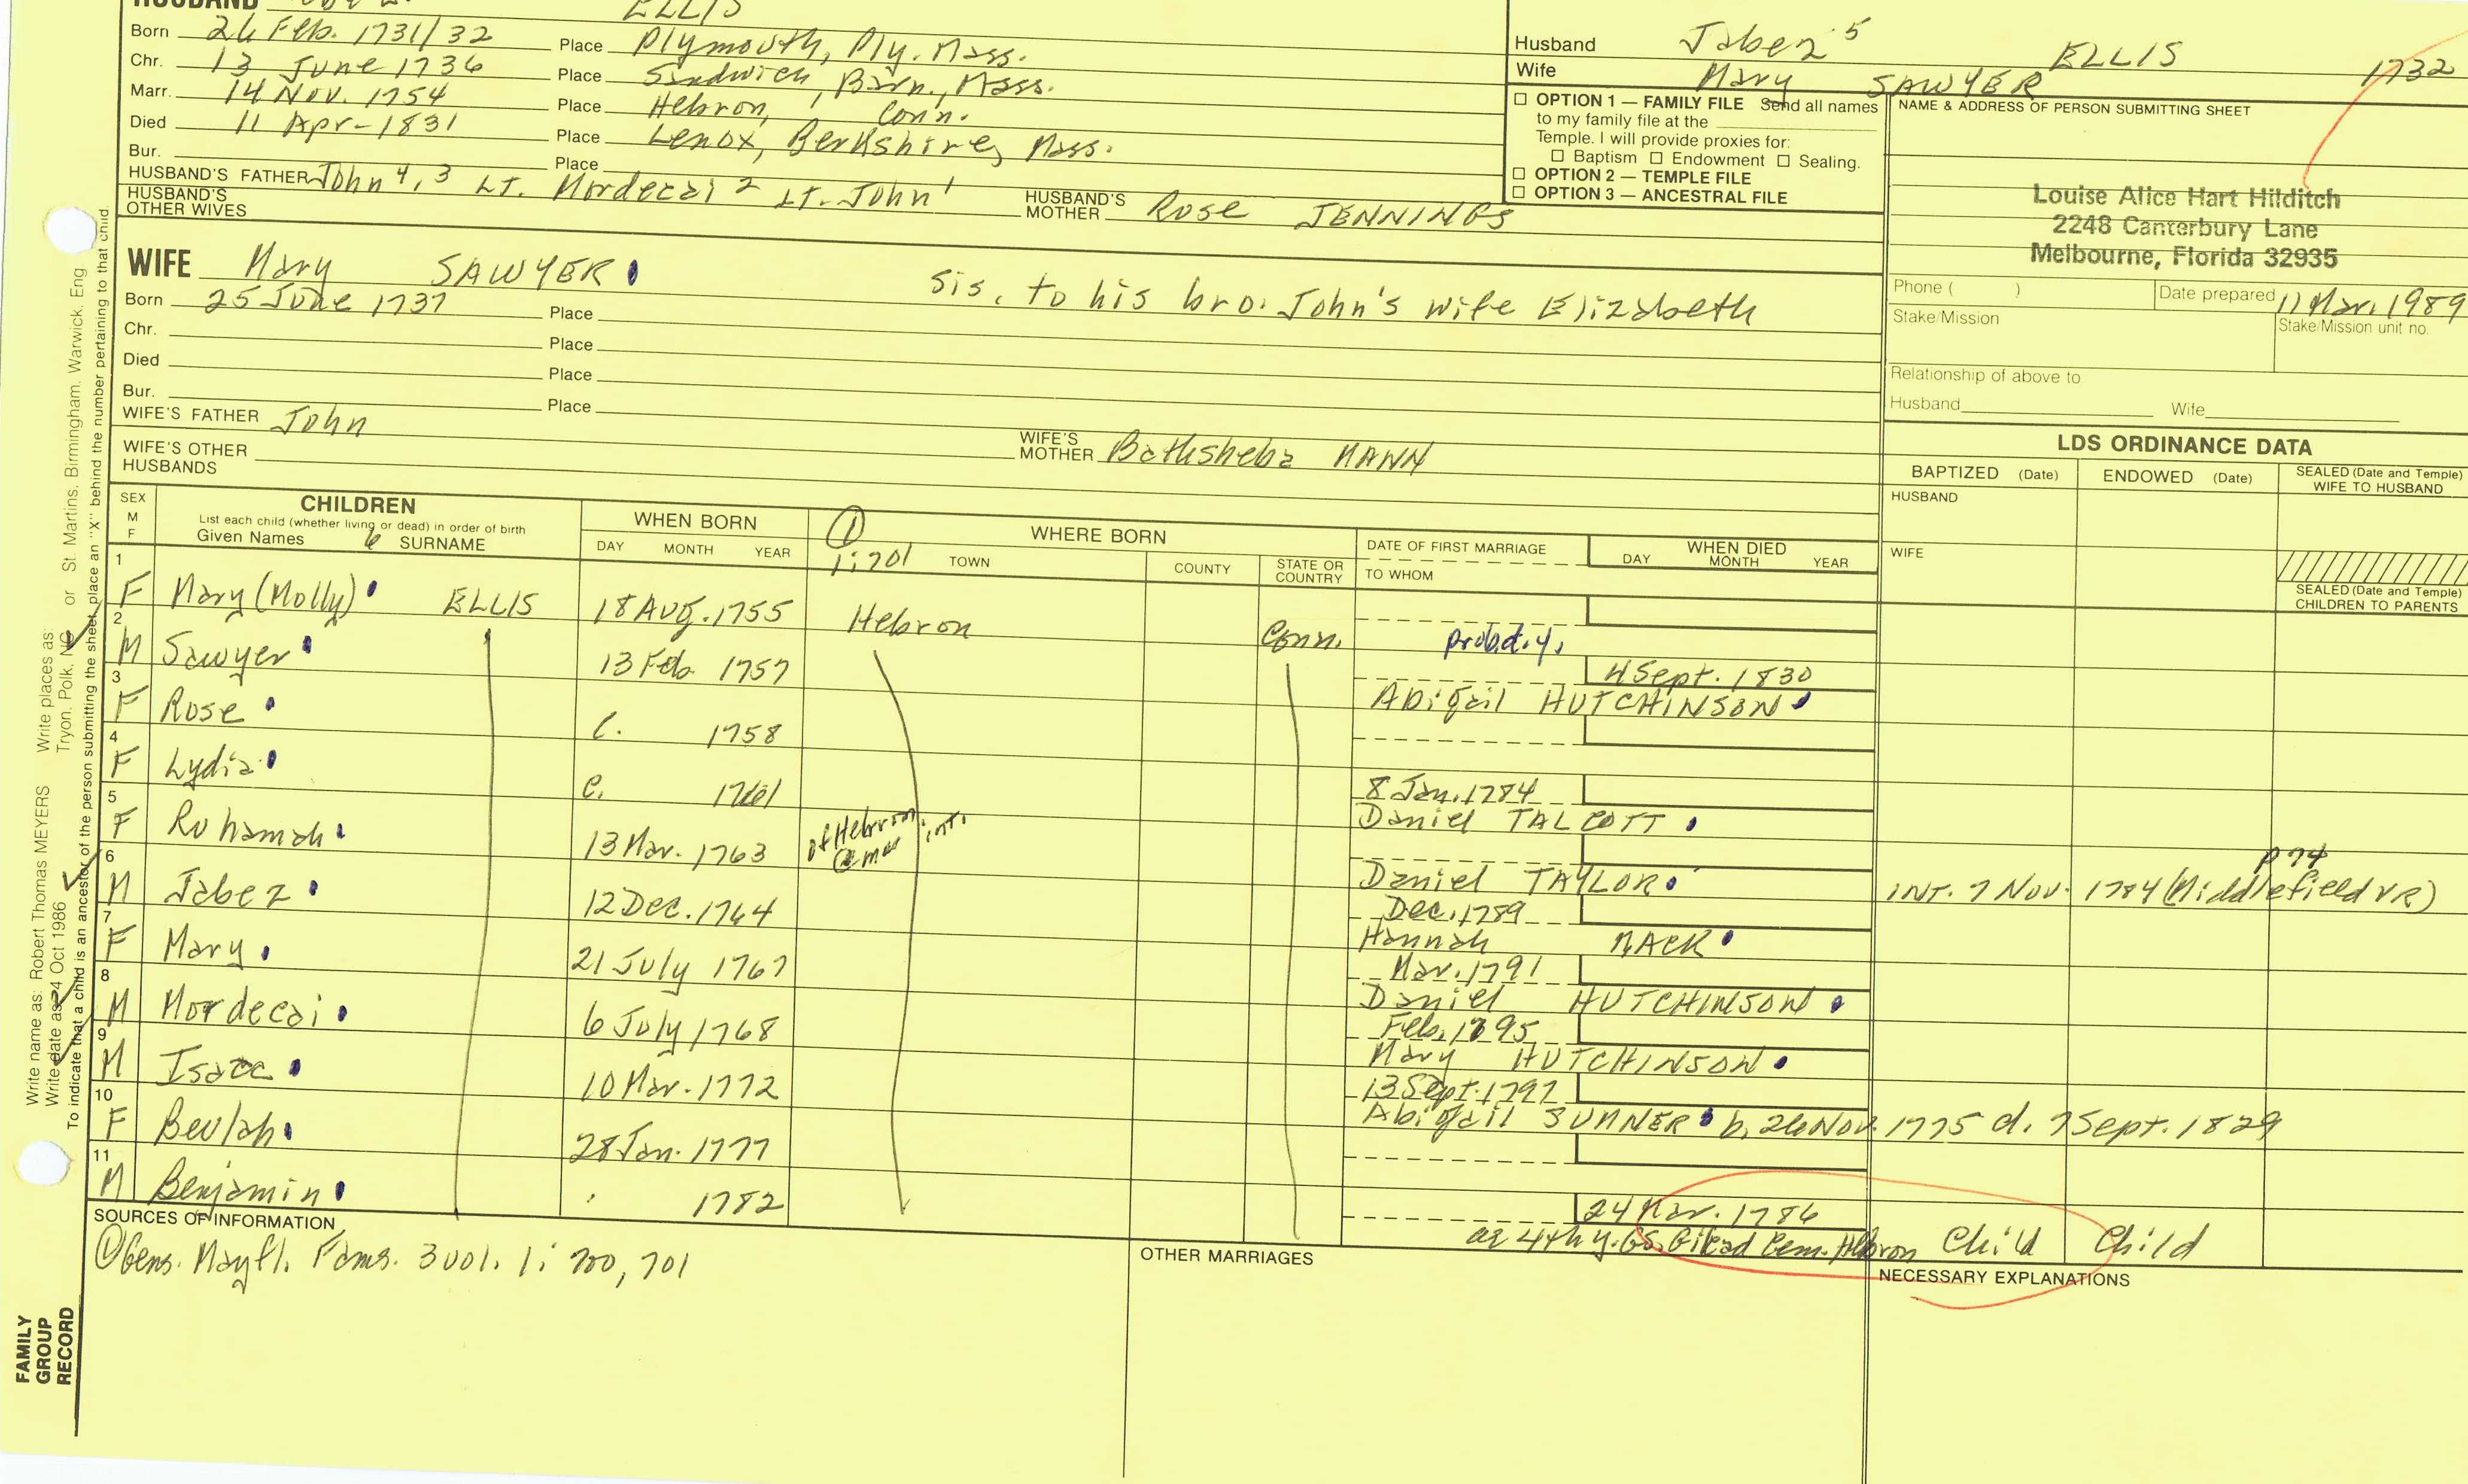 HUSBAND ELLIS
Born 26 Feb. 1731/32 Place Plymouth, Ply. Mass.
Chr. 13 June 1736 Place Sandwich, Barn., Mass.
Marr. 14 Nov. 1754 Place Hebron, Conn.
Died 11 Apr-1831 Place Lenox, Berkshire, Mass.
Bur. Place
HUSBAND'S FATHER John 4, 3 Lt. Mordecai 2 Lt. John 1 HUSBAND'S MOTHER Rose JENNINGS
HUSBAND'S OTHER WIVES
Husband Jabez 5 ELLIS 1732
Wife Mary SAWYER
☐ OPTION 1 — FAMILY FILE Send all names
to my family file at the
Temple. I will provide proxies for:
☐ Baptism ☐ Endowment ☐ Sealing.
☐ OPTION 2 — TEMPLE FILE
☐ OPTION 3 — ANCESTRAL FILE
NAME & ADDRESS OF PERSON SUBMITTING SHEET
Louise Alice Hart Hilditch
2248 Canterbury Lane
Melbourne, Florida 32935
Phone ( ) Date prepared 11 Mar. 1989
Stake/Mission Stake/Mission unit no.
Relationship of above to
Husband Wife
WIFE Mary SAWYER sis. to his bro. John's wife Elizabeth
Born 25 June 1737 Place
Chr. Place
Died Place
Bur. Place
WIFE'S FATHER John WIFE'S MOTHER Bathsheba MANN
WIFE'S OTHER HUSBANDS
LDS ORDINANCE DATA
BAPTIZED (Date) ENDOWED (Date) SEALED (Date and Temple) WIFE TO HUSBAND
HUSBAND
WIFE
SEALED (Date and Temple) CHILDREN TO PARENTS
SEX M F
CHILDREN
List each child (whether living or dead) in order of birth
Given Names 6 SURNAME
WHEN BORN
DAY MONTH YEAR
① 1:701
WHERE BORN
TOWN COUNTY STATE OR COUNTRY
DATE OF FIRST MARRIAGE
TO WHOM
WHEN DIED
DAY MONTH YEAR
1 F Mary (Molly) ELLIS 18 Aug. 1755 Hebron Conn. prob. d. y.
2 M Sawyer 13 Feb. 1757 4 Sept. 1830
Abigail HUTCHINSON
3 F Rose C. 1758
4 F Lydia c. 1761 8 Jan. 1784
Daniel TALCOTT
5 F Ruhamah 13 Mar. 1763 of Hebron @ mar int.
Daniel TAYLOR INT. 7 Nov. 1784 (Middlefield VR) p 74
6 M Jabez 12 Dec. 1764 Dec. 1789
Hannah MACK
7 F Mary 21 July 1767 Mar. 1791
Daniel HUTCHINSON
8 M Mordecai 6 July 1768 Feb. 1795
Mary HUTCHINSON
9 M Isaac 10 Mar. 1772 13 Sept. 1797
Abigail SUMNER b. 26 Nov. 1775 d. 7 Sept. 1829
10 F Beulah 28 Jan. 1777
11 M Benjamin 1782 24 Mar. 1786
ae 4th y. GS. Gilead Cem. Hebron Child Child
SOURCES OF INFORMATION
① Gens. Mayfl. Fams. 3 vol. 1: 700, 701
OTHER MARRIAGES
NECESSARY EXPLANATIONS
Write name as: Robert Thomas MEYERS Write places as: or St. Martins, Birmingham, Warwick, Eng
Write date as: 4 Oct 1986 Tryon, Polk, NC
To indicate that a child is an ancestor of the person submitting the sheet, place an "X" behind the number pertaining to that child.
FAMILY
GROUP
RECORD